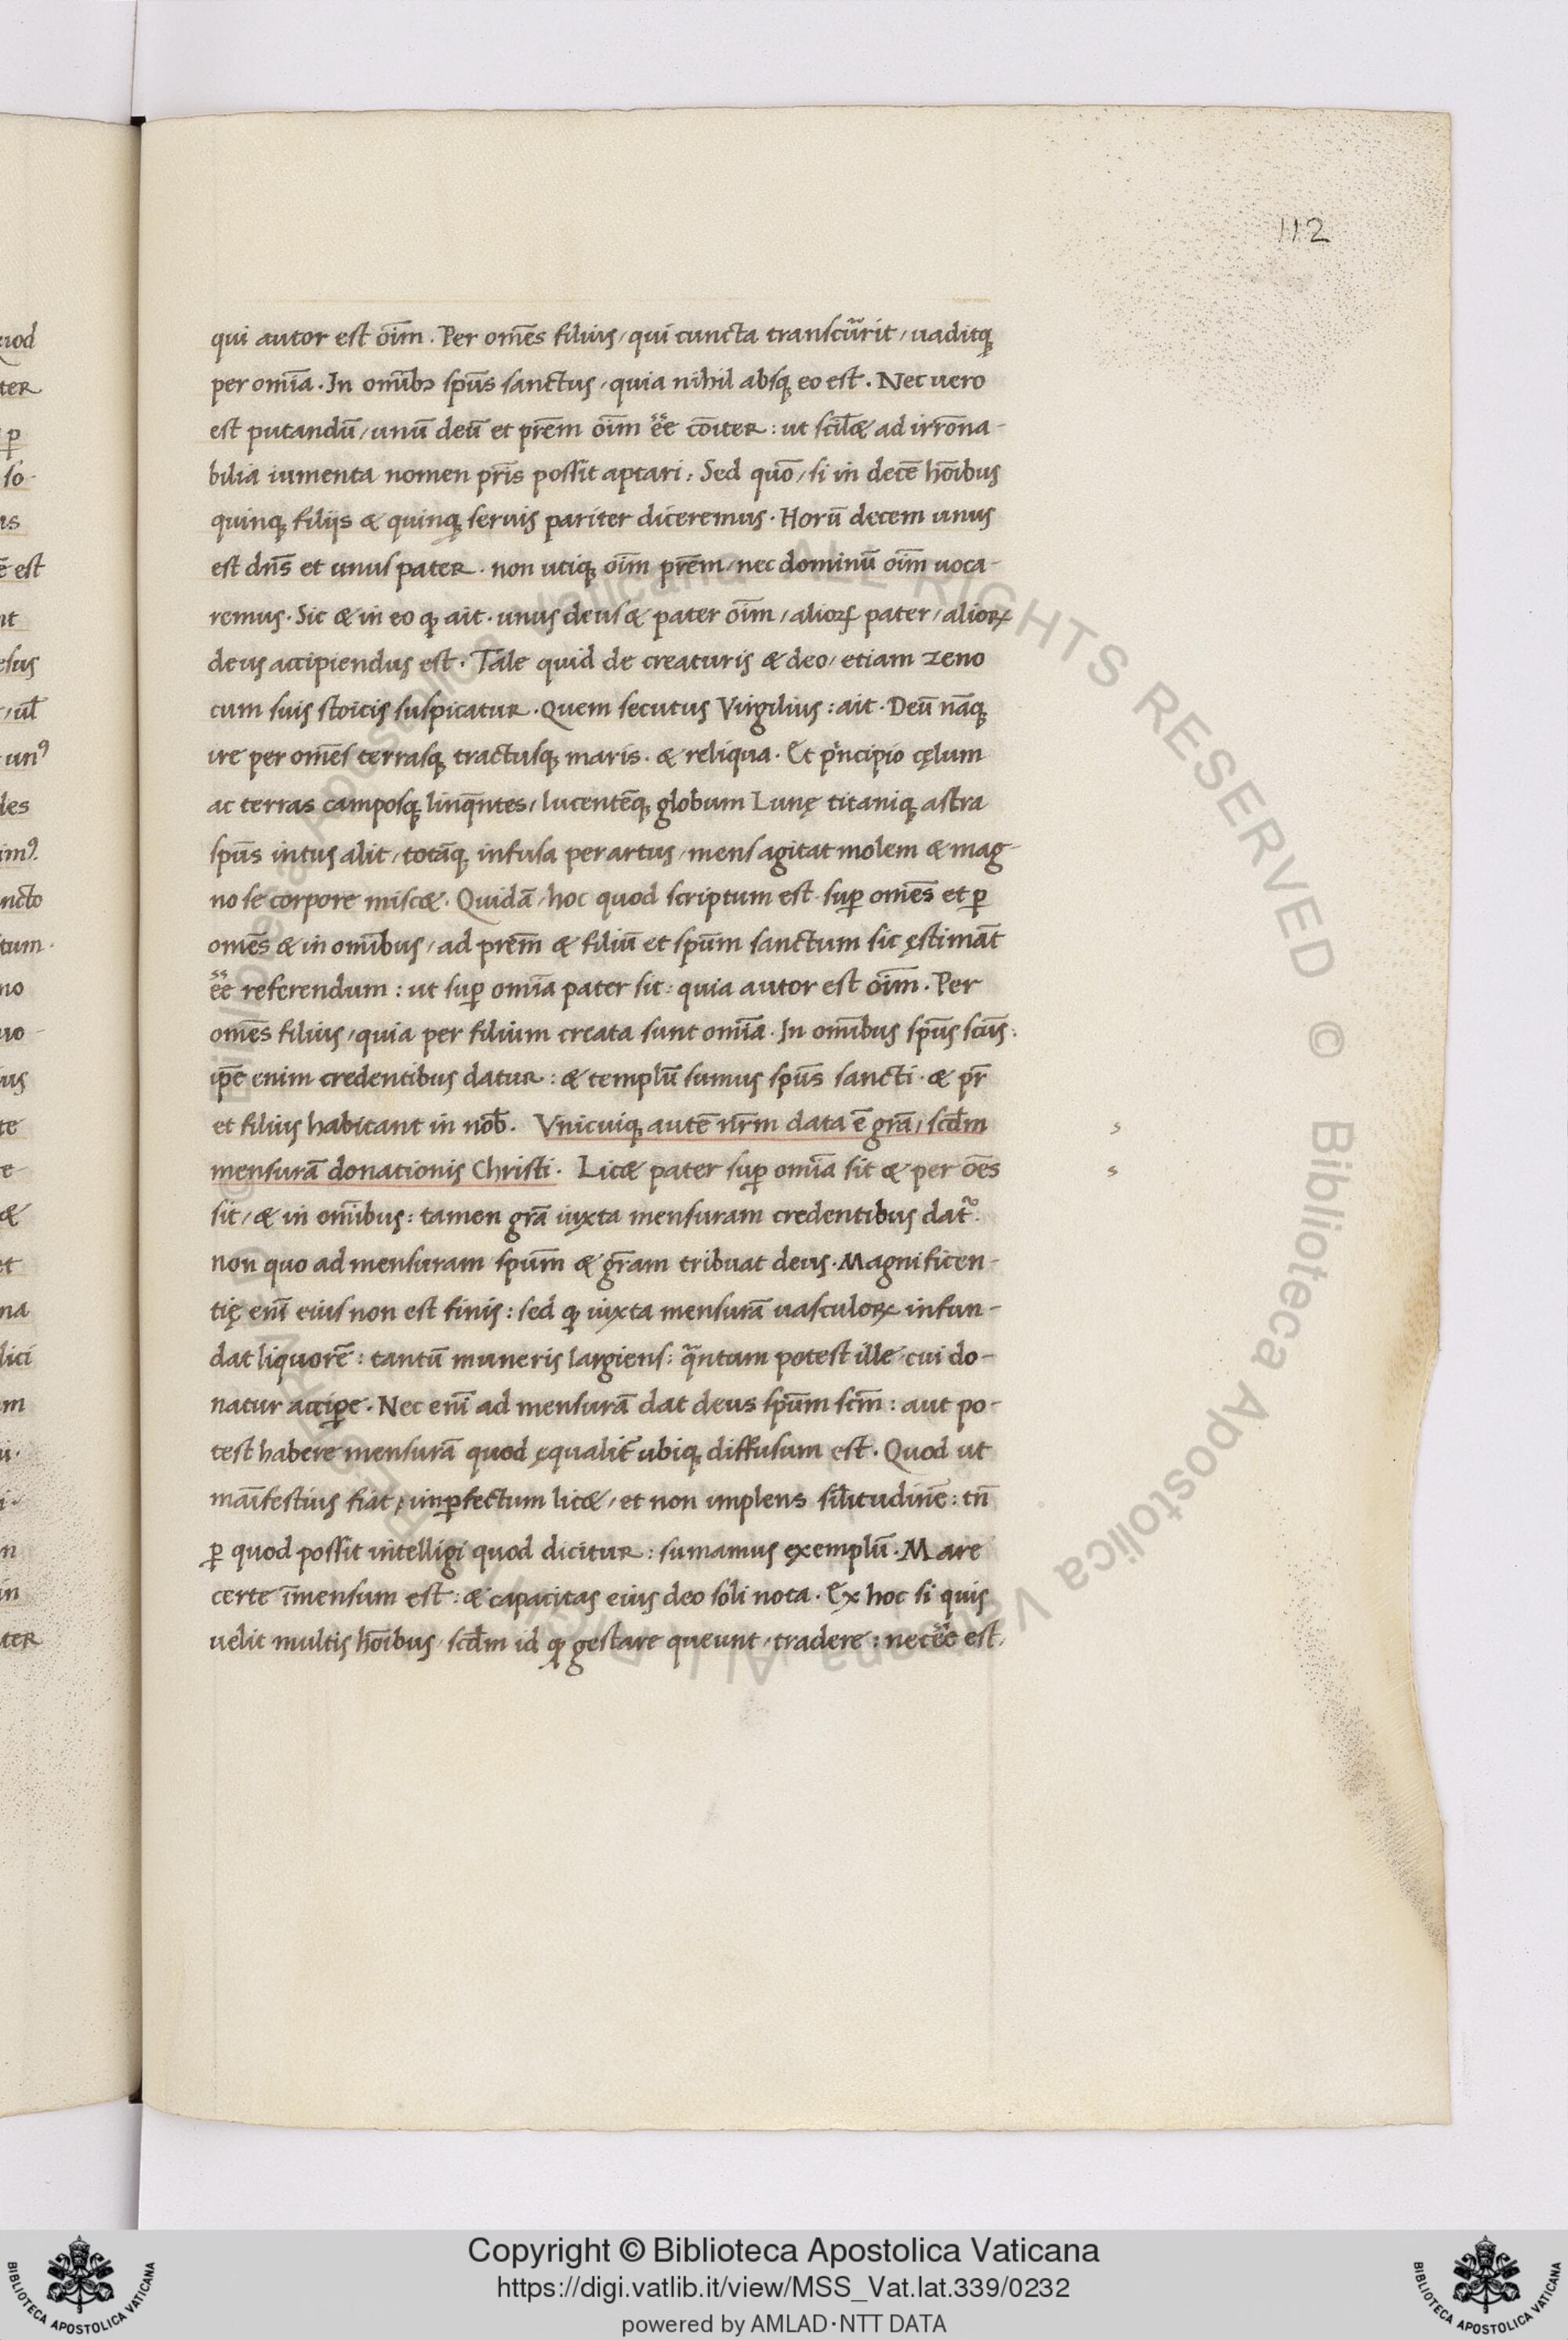 112
qui autor est oīm . Per omēs filius / qui cuncta transcūrit / uaditq;
per omīa . In omībꝫ spūs sanctus / quia nihil absq; eo est . Nec uero
est putandū / unū deū et prēm oīm ēē cōiter : ut scilꝫ & ad irrōna-
bilia iumenta nomen prīs possit aptari . Sed quō / si in decē hōibus
quinq; filijs & quinq; seruis pariter diceremus . Horū decem unus
est dn̄s et unus pater . non utiq; oīm prēm / nec dominū oīm uoca-
remus . Sic & in eo ꝙ ait . unus deus & pater oīm / alioꝝ pater / alioꝝ
deus accipiendus est . Tale quid de creaturis & deo / etiam zeno
cum suis stoicis suspicatur . Quem secutus Virgilius : ait . Deū nāq;
ire per omēs terrasq; tractusq; maris . & reliqua . Et prīncipio cęlum
ac terras camposq; linqntes / lucentēq; globum Lunę titaniq; astra
spūs intus alit / totāq; infusa per artus / mens agitat molem & mag-
no se corpore misc& . Quidā / hoc quod scriptum est suꝑ omēs et ꝑ
omēs & in omībus / ad prēm & filiū et spūm sanctum sic ęstimāt
ēē referendum : ut suꝑ omīa pater sit : quia autor est oīm . Per
omēs filius / quia per filium creata sunt omīa . In omībus spūs scūs :
ip̄e enim credentibus datur : & templū sumus spūs sancti . & pr̄
et filius habitant in nob̄ . Vnicuiq; autē nr̄m data ē grā / scd̄m
mensurā donationis Christi . Lic& pater suꝑ omīa sit & per oēs
sit / & in omībus : tamen grā iuxta mensuram credentibus dat᷑ .
non quo ad mensuram spūm & grām tribuat deus . Magnificen-
tię enī eius non est finis : sed ꝙ iuxta mensurā uasculoꝝ infun-
dat liquorē : tantū muneris largiens : qᵃntum potest ille cui do-
natur acciꝑe . Nec enī ad mensurā dat deus spūm scm̄ : aut po-
test habere mensurā quod ęqualit̄ ubiq; diffusum est . Quod ut
māifestius fiat / inꝑfectum lic& / et non implens sil̄itudinē : tn̄
ꝑ quod possit intelligi quod dicitur : sumamus exemplū . Mare
certe īmensum est : & capacitas eius deo soli nota . Ex hoc si quis
uelit multis hōibus / scd̄m id ꝙ gestare queunt / tradere : necēē est /
s
s
Copyright © Biblioteca Apostolica Vaticana
https://digi.vatlib.it/view/MSS_Vat.lat.339/0232
powered by AMLAD·NTT DATA